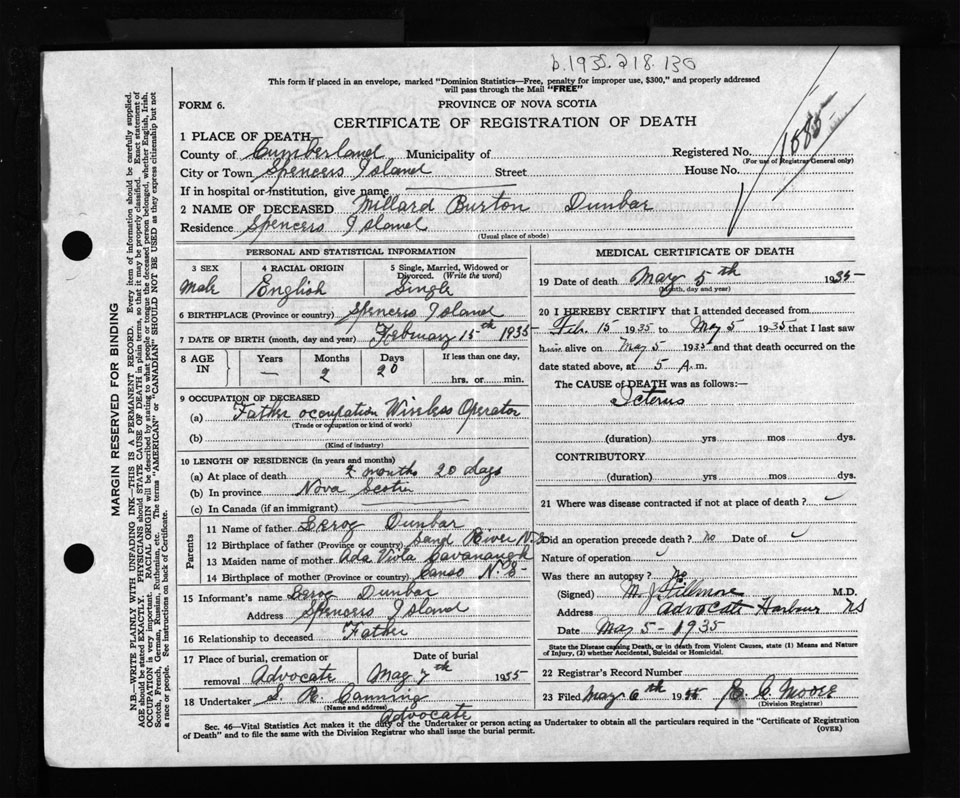 b.1935.218.130
This form if placed in an envelope, marked "Dominion Statistics—Free, penalty for improper use, $300," and properly addressed
will pass through the Mail "FREE"
FORM 6.
PROVINCE OF NOVA SCOTIA
CERTIFICATE OF REGISTRATION OF DEATH
1885
1 PLACE OF DEATH
County of Cumberland Municipality of Registered No.
(For use of Registrar General only)
City or Town Spencers Island Street House No.
If in hospital or institution, give name
2 NAME OF DECEASED Millard Burton Dunbar
Residence Spencers Island
(Usual place of abode)
PERSONAL AND STATISTICAL INFORMATION
3 SEX 4 RACIAL ORIGIN 5 Single, Married, Widowed or
Divorced. (Write the word)
Male English Single
6 BIRTHPLACE (Province or country) Spencers Island
7 DATE OF BIRTH (month, day and year) February 15th 1935
8 AGE IN Years Months Days If less than one day,
— 2 20 hrs. or min.
9 OCCUPATION OF DECEASED
(a) Father occupation Wireless Operator
(Trade or occupation or kind of work)
(b)
(Kind of industry)
10 LENGTH OF RESIDENCE (in years and months)
(a) At place of death 2 months 20 days
(b) In province Nova Scotia
(c) In Canada (if an immigrant)
Parents
11 Name of father Leroy Dunbar
12 Birthplace of father (Province or country) Sand River N.S
13 Maiden name of mother Ada Viola Cavanaugh
14 Birthplace of mother (Province or country) Canso N.S.
15 Informant's name Leroy Dunbar
Address Spencers Island
16 Relationship to deceased Father
17 Place of burial, cremation or Date of burial
removal Advocate May 7th 1935
18 Undertaker S. R. Canning
(Name and address)
Advocate
MEDICAL CERTIFICATE OF DEATH
19 Date of death May 5th 1935
(Month, day and year)
20 I HEREBY CERTIFY that I attended deceased from
Feb. 15 1935 to May 5 1935 that I last saw
him alive on May 5 1935 and that death occurred on the
date stated above, at 5 A.m.
The CAUSE of DEATH was as follows:—
Icterus
(duration) yrs mos dys.
CONTRIBUTORY
(duration) yrs mos dys.
21 Where was disease contracted if not at place of death?
Did an operation precede death? no Date of
Nature of operation
Was there an autopsy? no
(Signed) M. J. Fillmore M.D.
Address Advocate Harbour NS
Date May 5 - 1935
State the Disease causing Death, or in death from Violent Causes, state (1) Means and Nature
of Injury, (2) whether Accidental, Suicidal or Homicidal.
22 Registrar's Record Number
23 Filed May 6th 1935 E. C. Moore
(Division Registrar)
Sec. 46—Vital Statistics Act makes it the duty of the Undertaker or person acting as Undertaker to obtain all the particulars required in the "Certificate of Registration
of Death" and to file the same with the Division Registrar who shall issue the burial permit.
(OVER)
MARGIN RESERVED FOR BINDING
N.B.—WRITE PLAINLY WITH UNFADING INK—THIS IS A PERMANENT RECORD. Every item of information should be carefully supplied.
AGE should be stated EXACTLY. PHYSICIANS should STATE CAUSE OF DEATH in plain terms, so that it may be properly classified. Exact statement of
OCCUPATION is very important. RACIAL ORIGIN will be described by stating to what people or tongue the deceased person belonged, whether English, Irish,
Scotch, French, German, Russian, Ruthenian, etc. The terms "AMERICAN" or "CANADIAN" SHOULD NOT BE USED as they express citizenship but not
a race or people. See instructions on back of Certificate.